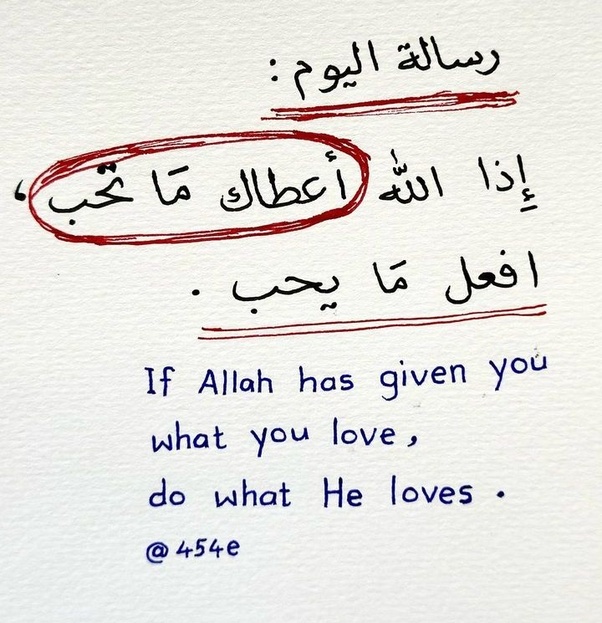 رسالة اليوم :
إِذا الله أعطاك مَا تحب ،
افعل مَا يحب .
If Allah has given you
what you love ,
do what He loves .
@454e